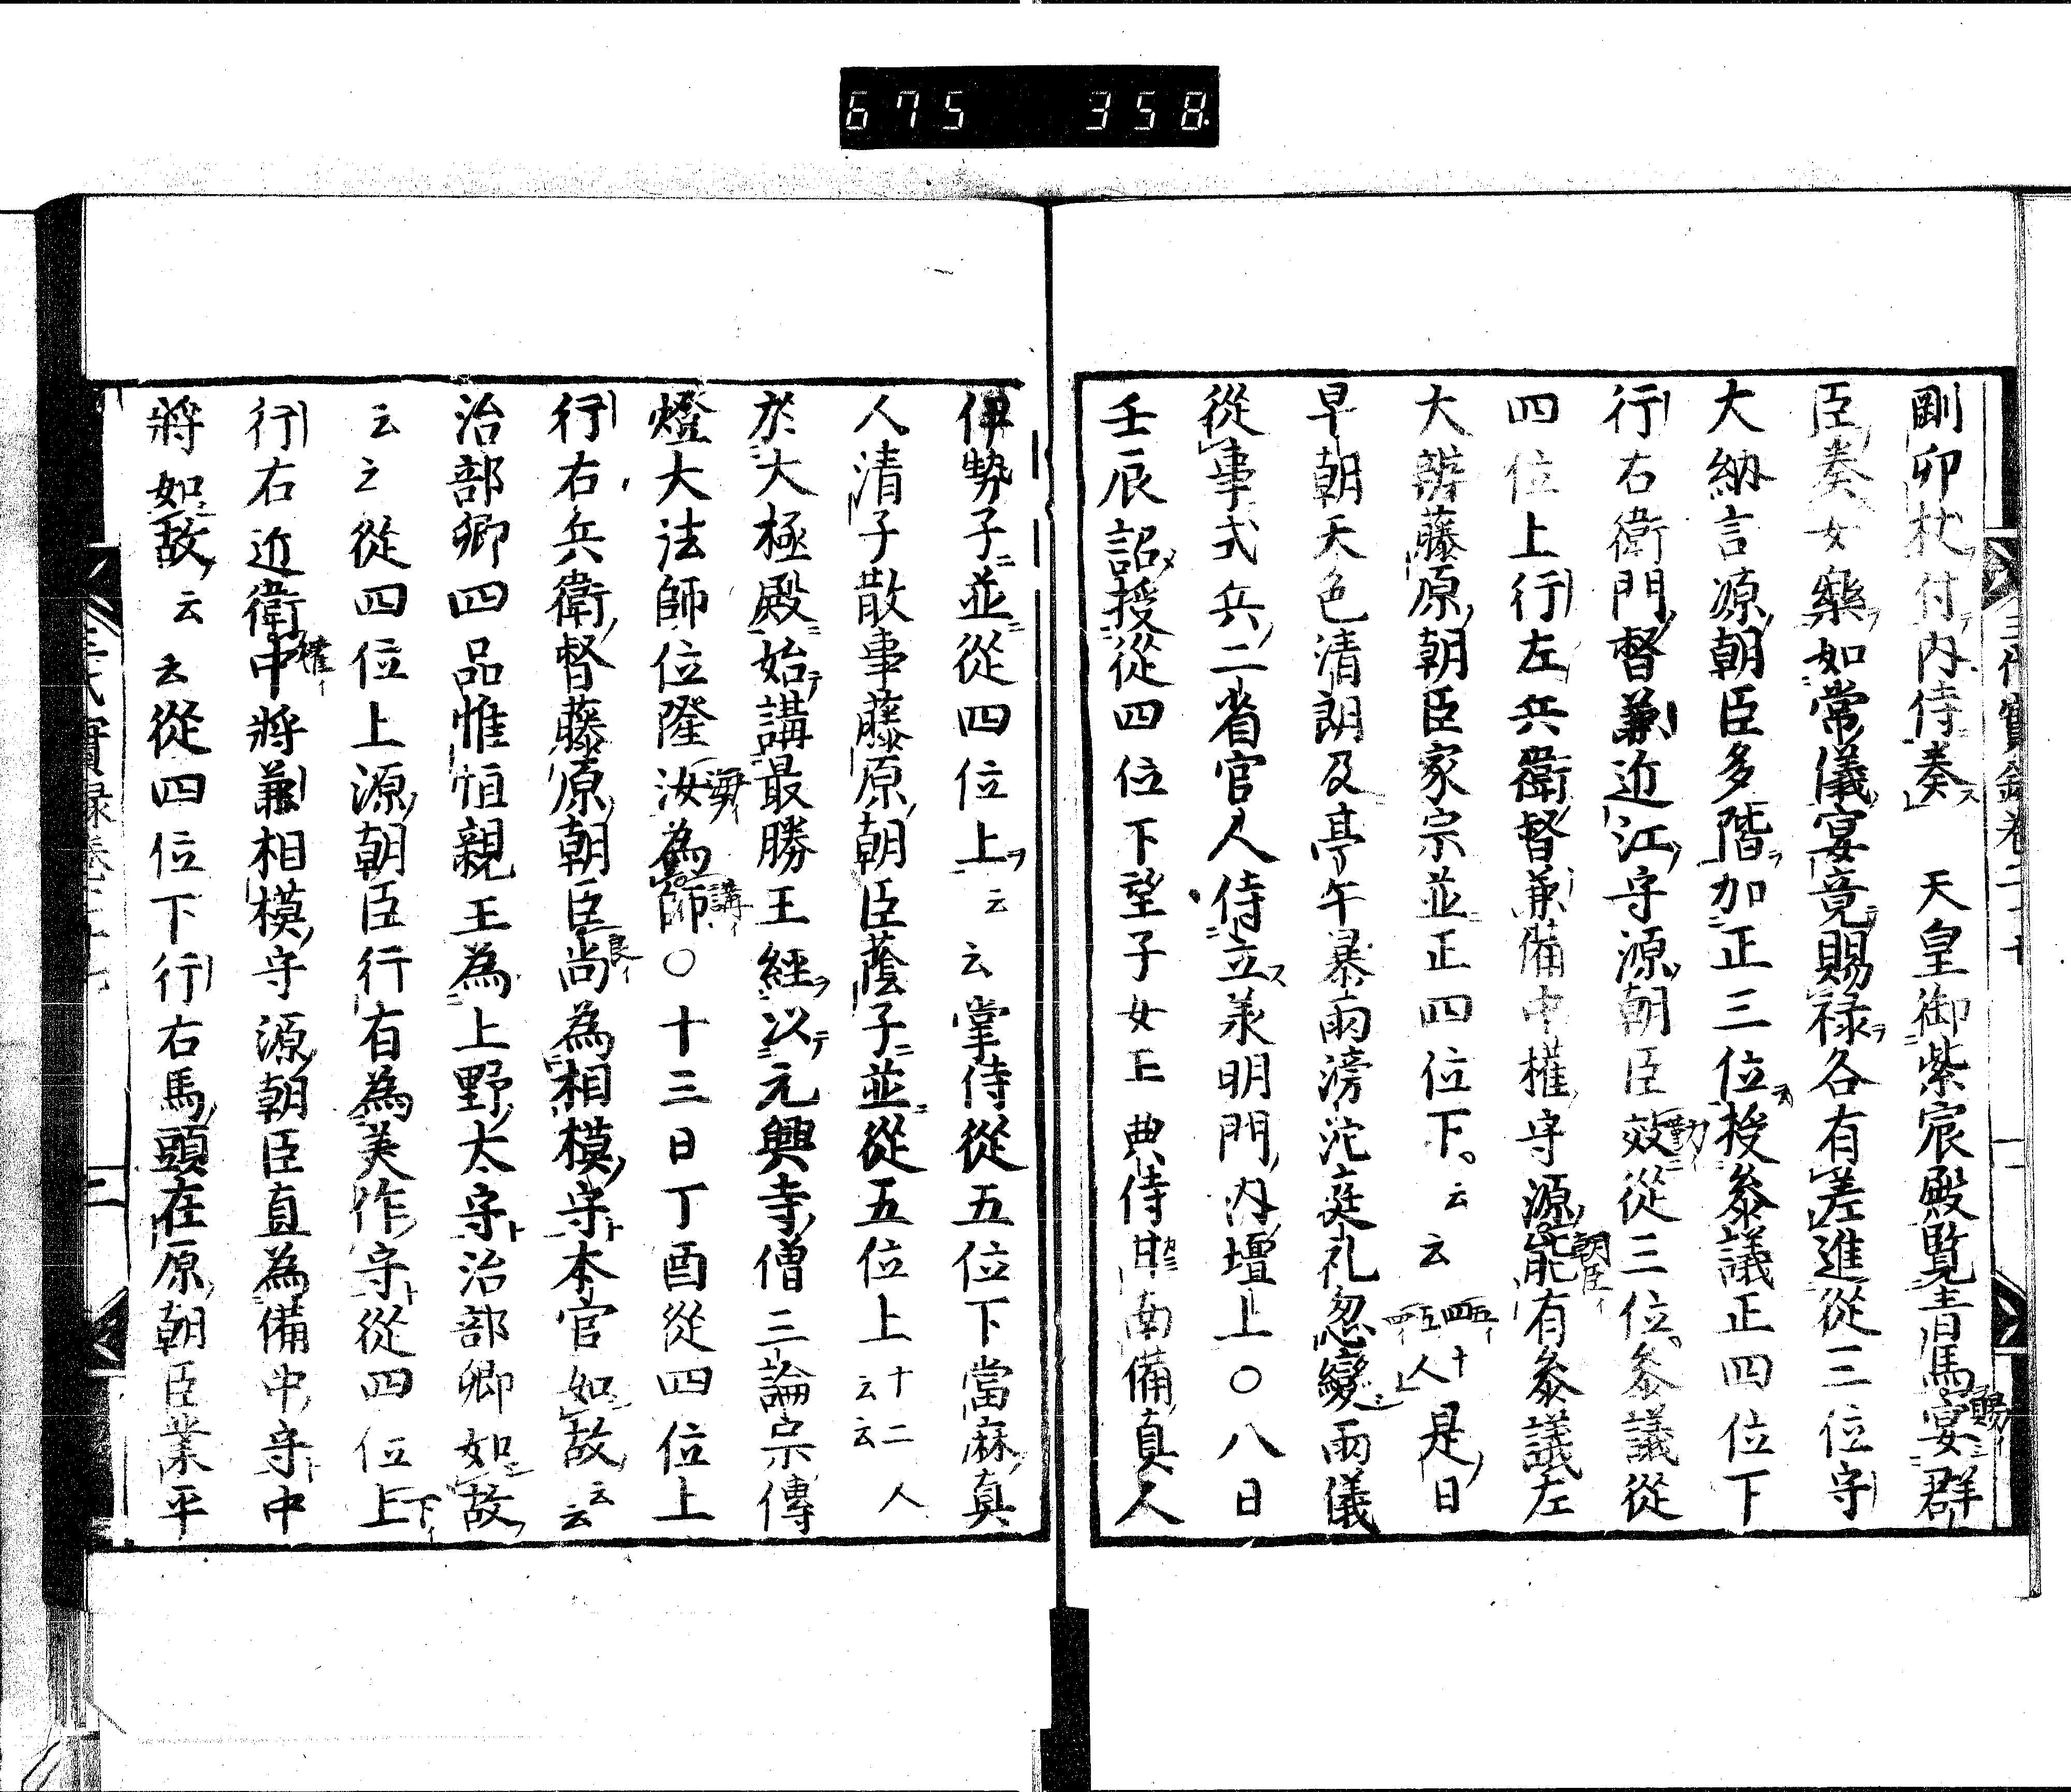 675 358
剛卯杖付内侍奏 天皇御紫宸殿覽青馬宴群
臣奏女樂如常儀宴竟賜祿各有差進從三位守
大納言源朝臣多階加正三位授參議正四位下
行右衛門督兼近江守源朝臣效從三位參議從
四位上行左兵衛督兼備中權守源能有參議左
大辨藤原朝臣家宗並正四位下云云十人是日
早朝天色清朗及亭午暴雨滂沱庭礼忽變雨儀
從事式兵二省官人侍立承明門内壇上〇八日
壬辰詔授從四位下望子女王典侍甘南備真人
伊勢子並從四位上云云掌侍從五位下當麻真
人清子散事藤原朝臣蔭子並從五位上十二人云云
於大極殿始講最勝王經以元興寺僧三論宗傳
燈大法師位隆汝為師〇十三日丁酉從四位上
行右兵衛督藤原朝臣尚為相模守本官如故云云
治部卿四品惟恒親王為上野太守治部卿如故
云之從四位上源朝臣行有為美作守從四位上
行右近衛中將兼相模守源朝臣直為備中守中
將如故云云從四位下行右馬頭在原朝臣業平